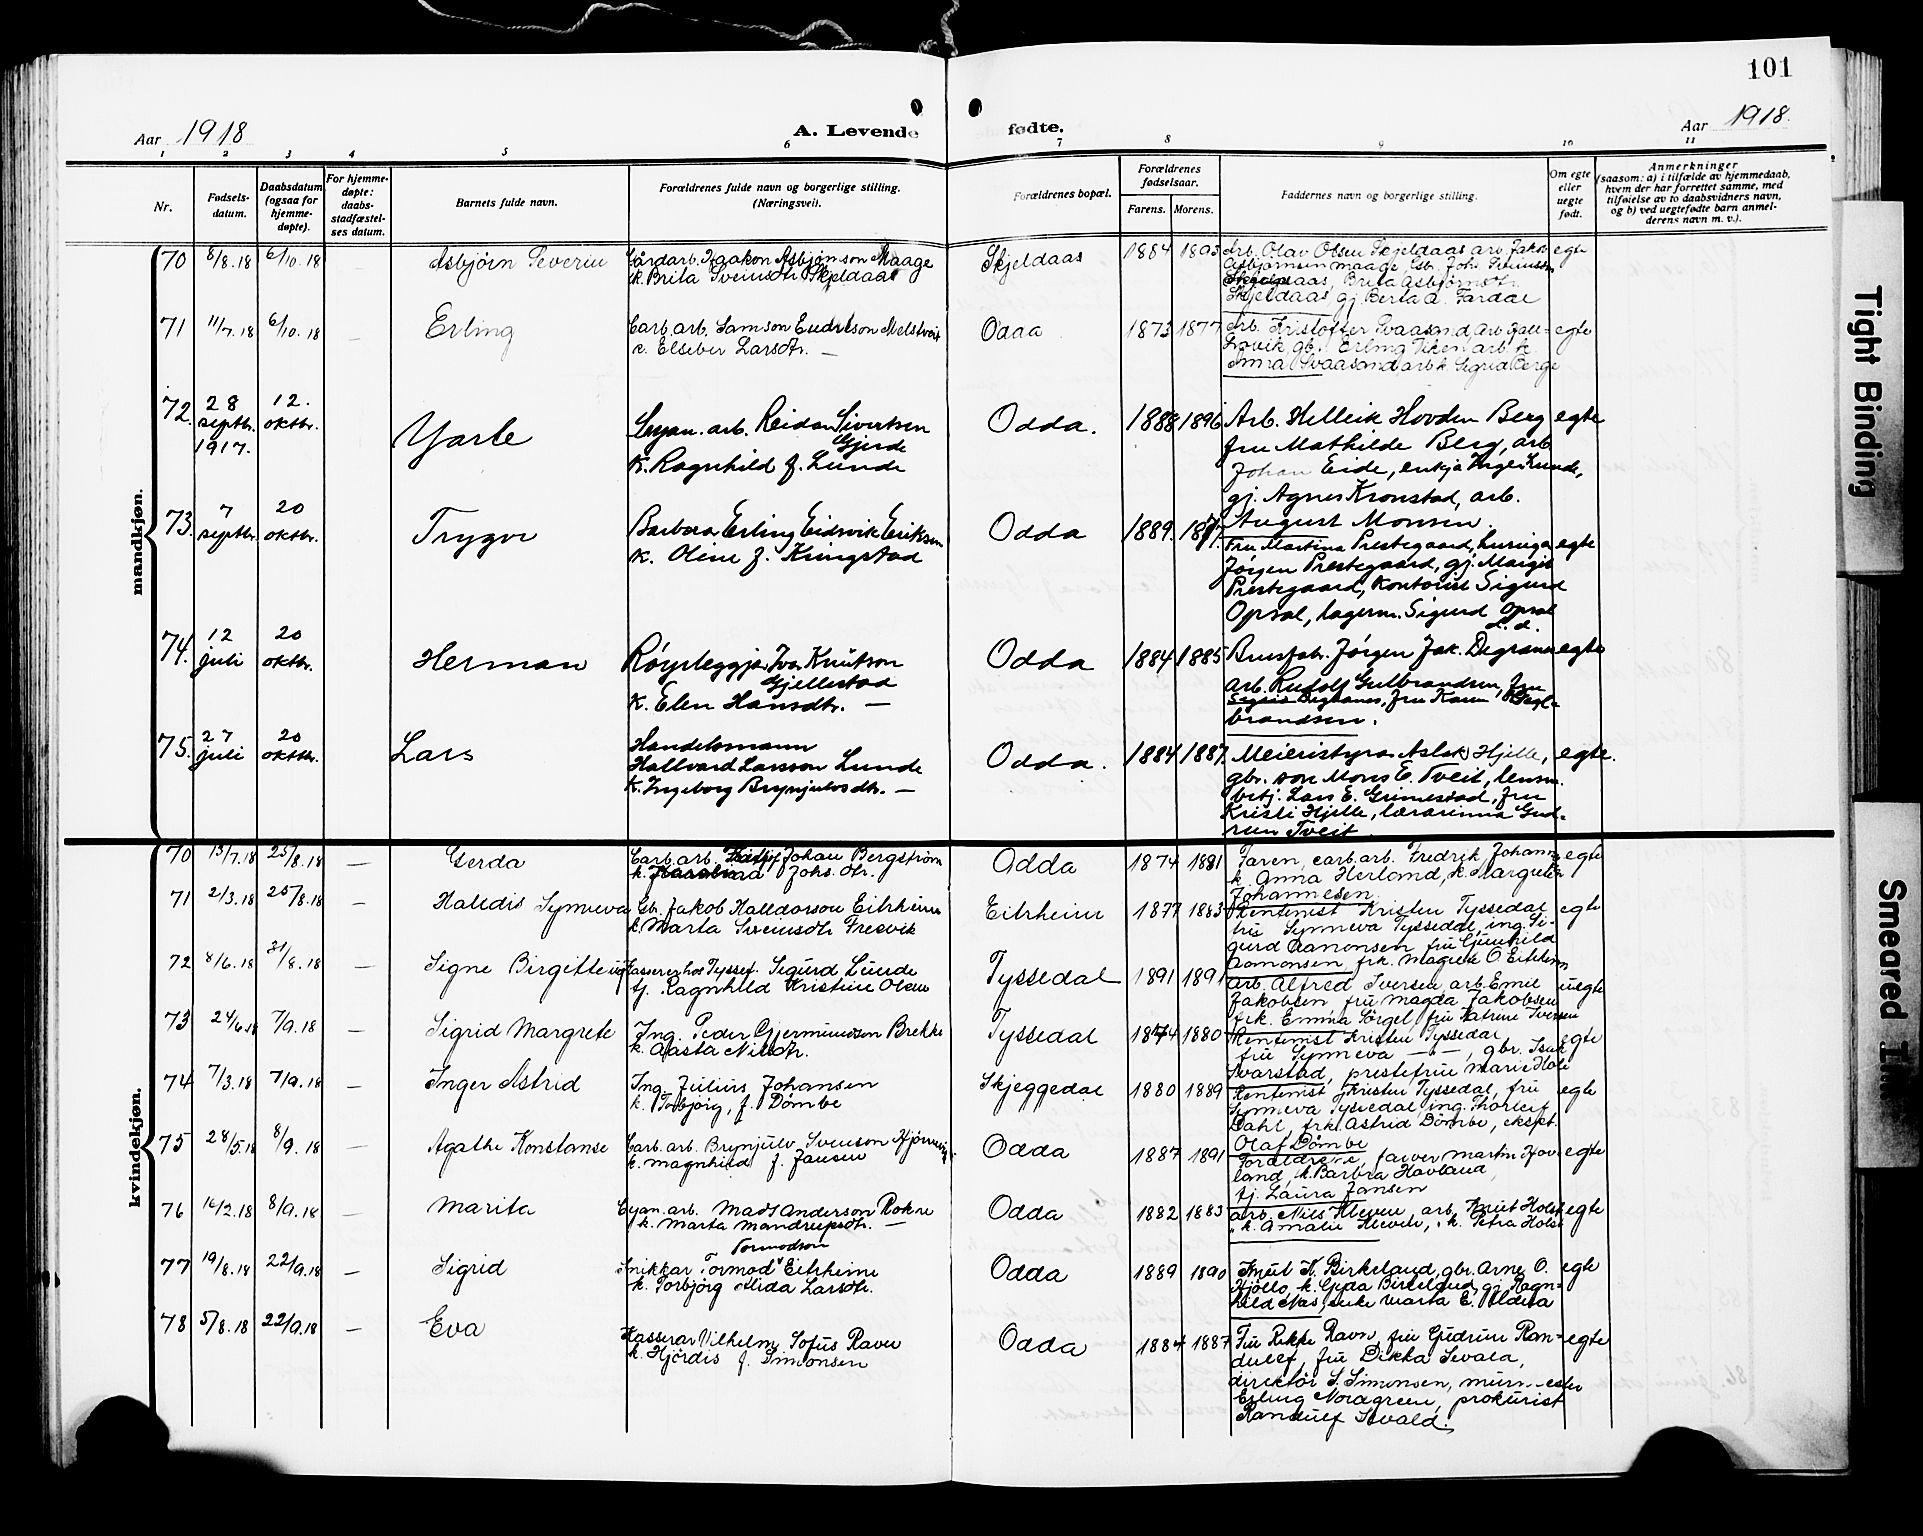 101
Aar 1918
A. Levende fødte.
Aar 1918.
1 2 3 4 5 6 7 8 9 10 11
Nr.
Fødsels-
datum.
Daabsdatum
(ogsaa for
hjemme-
døpte).
For hjemme-
døpte:
daabs-
stadfæstel-
ses datum.
Barnets fulde navn.
Forældrenes fulde navn og borgerlige stilling.
(Næringsvei).
Forældrenes bopæl.
Forældrenes
fødselsaar.
Farens. Morens.
Faddernes navn og borgerlige stilling.
Om egte
eller
uegte
født.
Anmerkninger
(saasom: a) i tilfælde av hjemmedaab,
hvem der har forrettet samme, med
tilføielse av to daabsvidners navn,
og b) ved uegtefødte barn anmel-
derens navn m. v.).
mandkjøn.
70 8/8.18 6/10.18 Asbjörn Severin
Gårdarb. Haakon Asbjørnson Maage
k. Brita Sveinsdtr. Skjeldaas
Skjeldaas 1884 1893
Arb. Olav Olsen Skjeldaas arb. Jakob
Asbjørnsen Maage, Gb. Johs. Sveinsson
Skjeldaas, Brita Asbjørnsdtr.
Skjeldaas, gj. Berta A. Tardal
egte
71 11/7.18 6/10.18 Erling
Carb. arb. Samson
k. Elseber Larsdtr. —
Odda 1873 1877
Arb. Kristoffer Svaasand arb.
gb. Erling Viken arb. k.
Anna Svaasand arb. k. Sigrid Berge
egte
72. 28 septbr. 1917. 12. oktbr. Yarle
Cyan. arb. Reidar Sivertsen
Gjerde
k. Ragnhild f. Lunde
Odda. 1888 1896
Arb. Helleik Hovden Berg
fru Mathilde Berg, arb
Johan Eide, enkja Lunde,
gj. Agnes Kronstad, arb.
August Monsen.
egte
73. 7 septbr. 20 oktbr. Trygve
Barberar Erling Eidsvik Eriksen
k. Olene f. Kringstad
Odda 1889.
Fru Martina Prestegaard,
Jørgen Prestegaard, gj. Margit
Prestegaard, kontorist Sigurd
Opsal, lagerm. Sigurd Opsal
egte
74. 12 juli 20 oktbr. Herman
Røyrleggjar Ivar Knutson
Gjellestad
k. Elen Hansdtr. —
Odda 1884 1885
Jørgen Jak. Digranes
arb. Rudolf Gulbrandsen, fru
Sigrid Digranes, fru Karen Gul-
brandsen.
egte
75. 27 juli 20 oktbr. Lars
Handelsmann
Hallvard Larsson Lunde
k. Ingeborg Brynjulvsdtr. —
Odda. 1884 1887.
Meieristyrar Aslak Hjelle,
gbr. son Mons E. Tveit, lensm.
betj. Lars E. Grimestad, fru
Kristi Hjelle, lærarinna Gud-
run Tveit.
egte.
kvindekjøn.
70 13/7.18 25/8.18 — Gerda
Carb. arb. Johan Bergström
k. Johs. dtr.
Odda 1874 1881
Faren, carb. arb. Fredrik Johann-
k. Anna Herland, k. Margrete
Johannesen
egte
71 2/3.18 25/8.18 — Halldis Synneva
Gb. Jakob Halldorson Eitrheim
k. Marta Sveinsdtr. Fresvik
Eitrheim 1877 1883
Rentenist Kristen Tyssedal
fru Synneva Tyssedal, ing. Si-
gurd Aamonsen fru Gunhild
Aamonsen frk. Magrete O Eitrheim
egte
72 8/6.18 31/8.18 — Signe Birgitte
Kasserer hos Tyssef. Sigurd Lunde
tj. Ragnhild Kristine Olsen
Tyssedal 1891 1891
Arb. Alfred Iversen, arb. Emil
Jakobsen, fru Magda Jakobsen
frk. Emma Sörgel, fru Katrine Iversen
uegte
73 24/6.18 7/9.18 — Sigrid Margrete
Ing. Peder Gjermundsen Brekke
k. Aasta Nilsdtr.
Tyssedal 1874 1880
Rentenist Kristen Tyssedal
fru Synneva —"—, gbr. Isak
Svarstad, prestefru Marie Hole
egte
74 7/3.18 7/9.18 — Inger Astrid
Ing. Julius Johansen
k. Torbjörg, f. Dömbe
Skjeggedal 1880 1889
Rentenist Kristen Tyssedal, fru
Synneva Tyssedal, ing. Thorleif
Dahl, frk. Astrid Dömbe, eksp.
Olaf Dömbe
egte
75 28/5.18 8/9.18 — Agathe Konstanse
Carb. arb. Brynjulv Svenson
k. Magnhild f. Jansen
Odda 1887 1891
Foreldrene, farver Martin Hov-
land, k. Barbra Hovland,
tj. Laura Jansen
egte
76 14/2.18 8/9.18 — Marita
Cyan. arb. Mads Anderson Rokne
k. Marta Mandrupsdtr. —
Odda 1882 1883
Arb. Nils Kleven, arb. Knut Holst
k. Amalie Kleven, k. Petra Holst
egte
77 19/8.18 22/9.18 — Sigrid
Tormodson
Snikkar Tormod Eitrheim
k. Torbjörg Alida Larsdtr.
Odda 1889 1890
Knut K. Birkeland, gbr. Arne O.
Hjöllo, k. Gyda Birkeland, gj. Ragn-
hild Aas, enke Marta E.
egte
78 5/8.18 22/9.18 — Eva
Kasserar Vilhelm Sofus Ravn
k. Hjördis f. Simonsen
Odda 1884 1887
Fru Rikke Ravn, fru Gudrun Ran-
dulff, fru Dikka Sevald,
direktör S. Simonsen,
Erling Nordgreen, prokurist
Randulf Sevald.
egte
Tight Binding
Smeared Ink